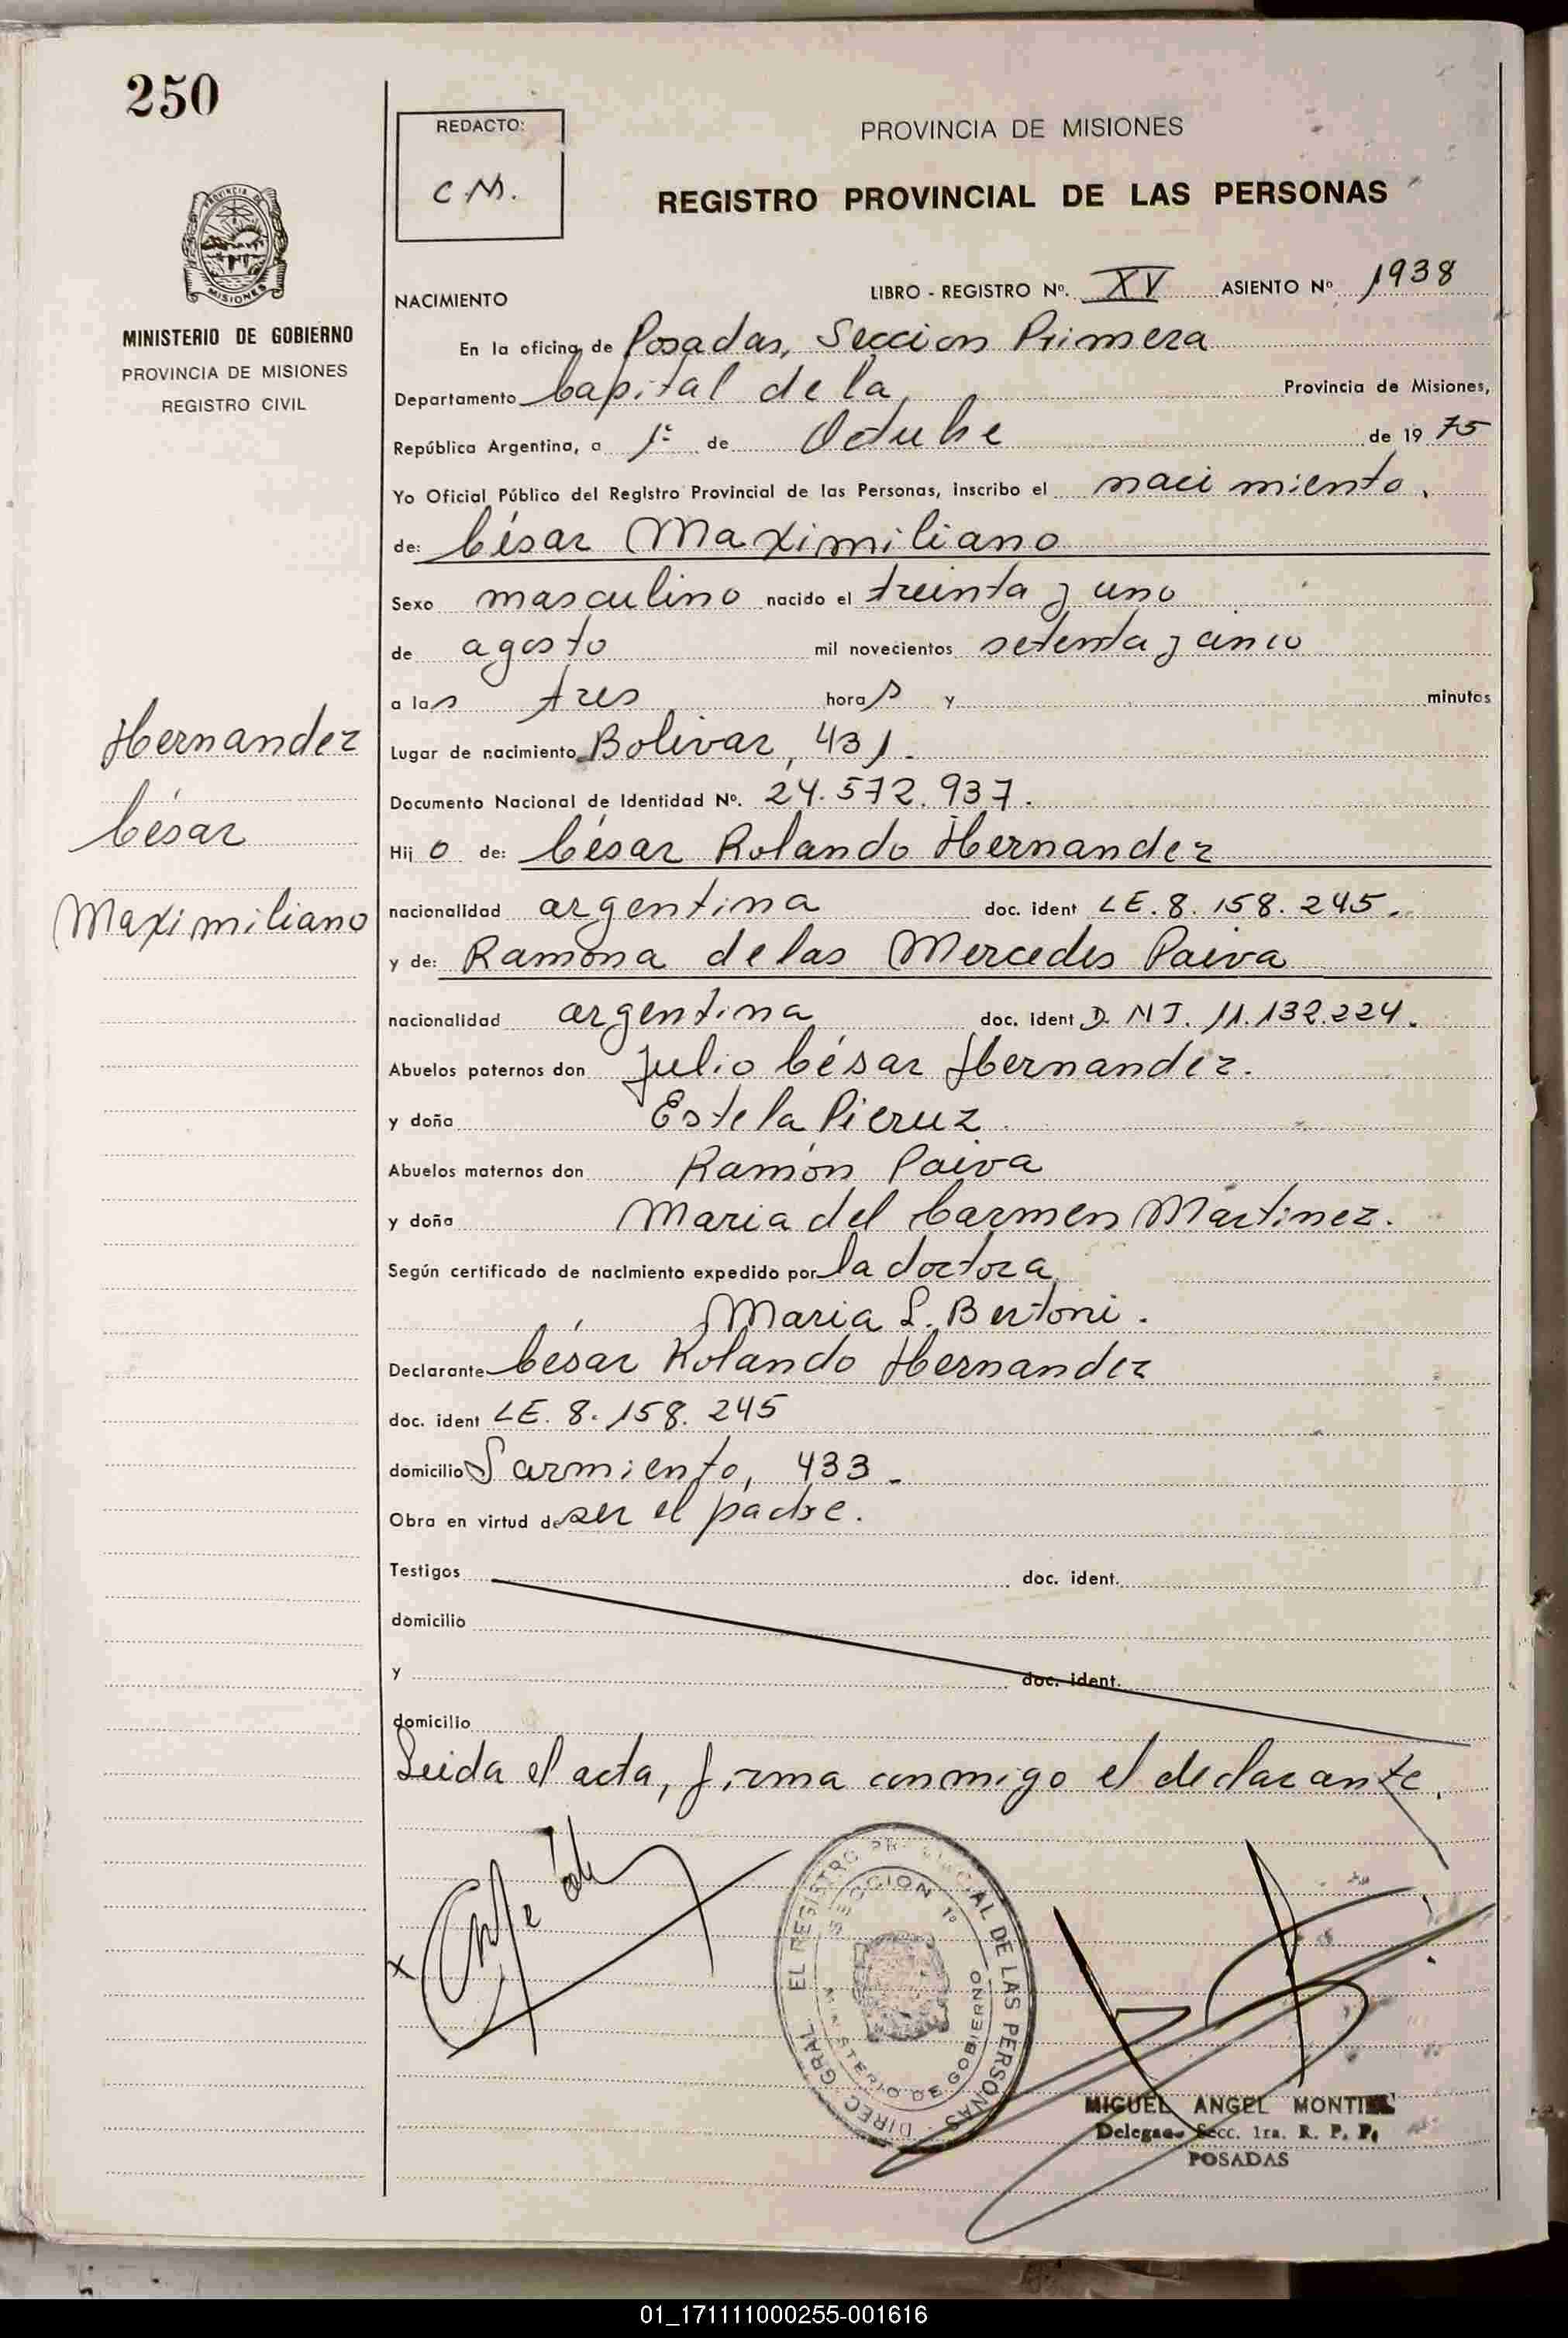 250
PROVINCIA DE
MISIONES
MINISTERIO DE GOBIERNO
PROVINCIA DE MISIONES
REGISTRO CIVIL
Hernandez
César
Maximiliano
REDACTO:
C.M.
PROVINCIA DE MISIONES
REGISTRO PROVINCIAL DE LAS PERSONAS
NACIMIENTO LIBRO - REGISTRO Nº. XV ASIENTO Nº 1938
En la oficina de Posadas, Seccion Primera
Departamento Capital de la Provincia de Misiones,
República Argentina, a 1º de Octubre de 1975
Yo Oficial Público del Registro Provincial de las Personas, inscribo el nacimiento.
de: César Maximiliano
Sexo masculino nacido el treinta y uno
de agosto mil novecientos setenta y cinco
a las tres horas y minutos
Lugar de nacimiento Bolivar, 431.
Documento Nacional de Identidad Nº. 24.572.937.
Hijo de: César Rolando Hernandez
nacionalidad argentina doc. ident LE. 8. 158. 245.
y de: Ramona de las Mercedes Paiva
nacionalidad argentina doc. ident D. NI. 11.132.224.
Abuelos paternos don Julio César Hernandez.
y doña Estela Pieruz.
Abuelos maternos don Ramón Paiva
y doña Maria del Carmen Martinez.
Según certificado de nacimiento expedido por la doctora
Maria L. Bertoni.
Declarante César Rolando Hernandez
doc. ident LE. 8. 158. 245
domicilio Sarmiento, 433
Obra en virtud de ser el padre.
Testigos doc. ident.
domicilio
y doc. ident.
domicilio
Leida el acta, firma conmigo el declarante.
x
DIREC. GRAL. EL REGISTRO PROVINCIAL DE LAS PERSONAS
SECCION 1º
MINISTERIO DE GOBIERNO
MIGUEL ANGEL MONTIEL
Delegado Secc. 1ra. R. P. P.
POSADAS
01_171111000255-001616